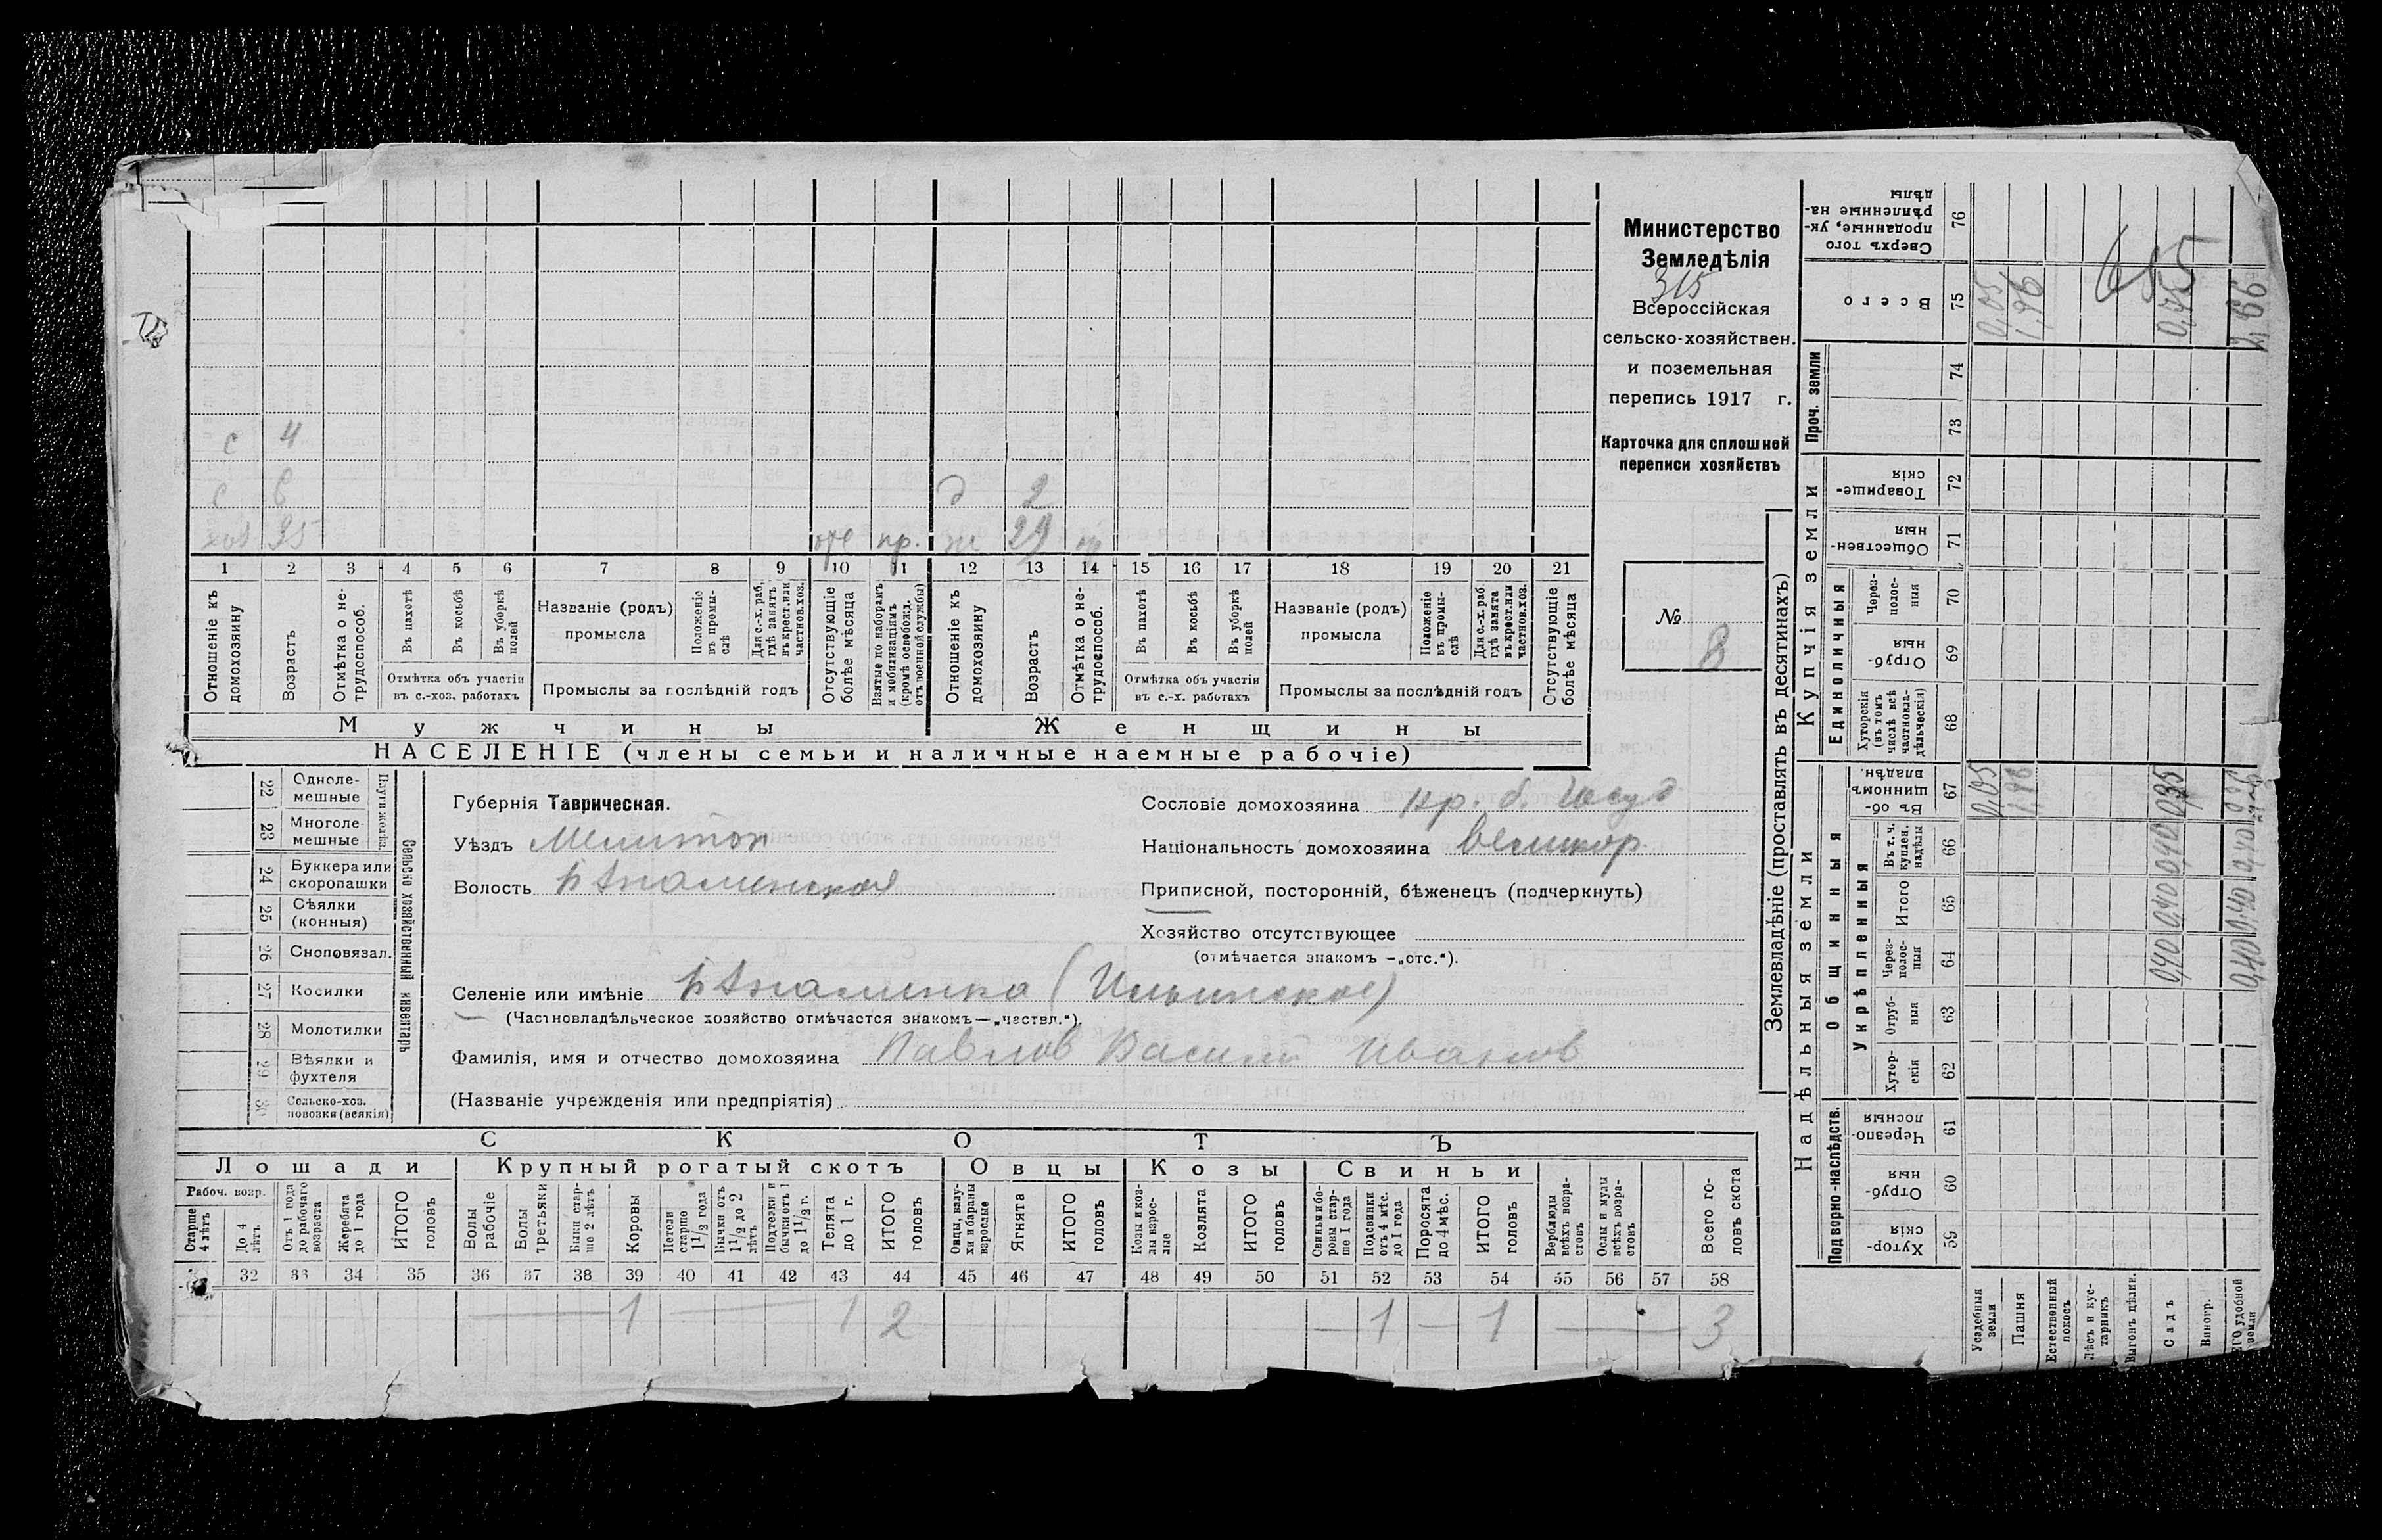 Министерство
Земледѣлія
315
Всероссійская
сельско-хозяйствен.
и поземельная
перепись 1917 г.
Карточка для сплошной
переписи хозяйствъ
№ 8
с 4
с 6 д 2
хоз 35 отс пр. ж 29
1 2 3 4 5 6 7 8 9 10 11 12 13 14 15 16 17 18 19 20 21
Отношеніе къ домохозяину
Возрастъ
Отмѣтка о нетрудоспособ.
Въ пахотѣ
Въ косьбѣ
Въ уборкѣ полей
Отмѣтка объ участіи въ с.-хоз. работахъ
Названіе (родъ) промысла
Положеніе въ промыслѣ
Для с.-х. раб. гдѣ занятъ въ крест. или частнов. хоз.
Промыслы за послѣдній годъ
Отсутствующіе болѣе мѣсяца
Взятые по наборамъ и мобилизаціямъ (кромѣ освобожд. отъ военной службы)
Отношеніе къ домохозяину
Возрастъ
Отмѣтка о нетрудоспособ.
Въ пахотѣ
Въ косьбѣ
Въ уборкѣ полей
Отмѣтка объ участіи въ с.-х. работахъ
Названіе (родъ) промысла
Положеніе въ промыслѣ
Для с.-х. раб. гдѣ занята въ крест. или частнов. хоз.
Промыслы за послѣдній годъ
Отсутствующіе болѣе мѣсяца
Мужчины Женщины
НАСЕЛЕНІЕ (члены семьи и наличные наемные рабочіе)
Сельско хозяйственный инвентарь
22 Однолемешные
23 Многолемешные
24 Буккера или скоропашки
25 Сѣялки (конныя)
26 Сноповязал.
27 Косилки
28 Молотилки
29 Вѣялки и фухтеля
30 Сельско-хоз. повозки (всякія)
Губернія Таврическая.
Уѣздъ Мелитоп
Волость
Сословіе домохозяина кр. б.
Національность домохозяина великор.
Приписной, посторонній, бѣженецъ (подчеркнуть)
Хозяйство отсутствующее
(отмѣчается знакомъ —„отс.“).
Селеніе или имѣніе
(Частновладѣльческое хозяйство отмѣчается знакомъ—„частвл.“).
Фамилія, имя и отчество домохозяина Павлов Василий Иванов
(Названіе учрежденія или предпріятія)
СКОТЪ
Лошади Крупный рогатый скотъ Овцы Козы Свиньи
Рабоч. возр.
Старше 4 лѣтъ
До 4 лѣтъ.
Отъ 1 года до рабочаго возраста
Жеребята до 1 года
ИТОГО головъ
Волы рабочіе
Волы третьяки
Быки старше 2 лѣтъ
Коровы
Нетели старше 1½ года
Бычки отъ 1½ до 2 лѣтъ
Подтелки и бычки отъ 1 до 1½ г.
Телята до 1 г.
ИТОГО головъ
Овцы, валухи и бараны взрослые
Ягнята
ИТОГО головъ
Козы и козлы взрослые
Козлята
ИТОГО головъ
Свиньи и боровы старше 1 года
Подсвинки отъ 4 мѣс. до 1 года
Поросята до 4 мѣс.
ИТОГО головъ
Верблюды всѣхъ возрастовъ
Ослы и мулы всѣхъ возрастовъ
Всего головъ скота
32 33 34 35 36 37 38 39 40 41 42 43 44 45 46 47 48 49 50 51 52 53 54 55 56 57 58
1 1 2 1 1 3
Землевладѣніе (проставлять въ десятинахъ)
Надѣльныя земли Купчія земли Проч. земли
Подворно-наслѣдств.
Общинныя
Укрѣпленныя
Единоличныя
59 Хуторскія
60 Отрубныя
61 Черезполосныя
62 Хуторскія
63 Отрубныя
64 Черезполосныя
65 Итого
66 Въ т. ч. куплен. надѣлы
67 Въ общинномъ владѣн.
68 Хуторскія (въ томъ числѣ всѣ частновладѣльческія)
69 Отрубныя
70 Черезполосныя
71 Общественныя
72 Товарищескія
73
74
75 Всего
76 Сверхъ того проданные, укрѣпленные надѣлы
Усадебныя земли 0,05 0,05
Пашня 1,96 1,96
Естественный покосъ
Лѣсъ и кустарникъ
Выгонъ цѣлин.
Садъ 0,40 0,40 0,40 0,35
Виногр.
удобной земли 0,40 0,40 0,40